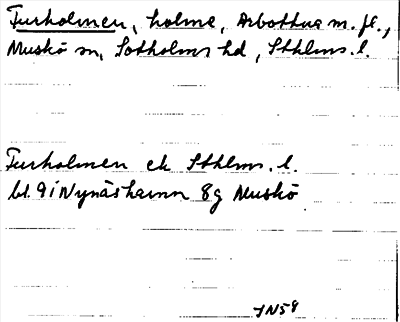 Furholmen, holme, Arbottna m. fl.,
Muskö sn, Sotholms hd, Sthlms. l.
Furholmen ek Sthlms. l.
bl. 9i Nynäshamn 8g Muskö
JN59